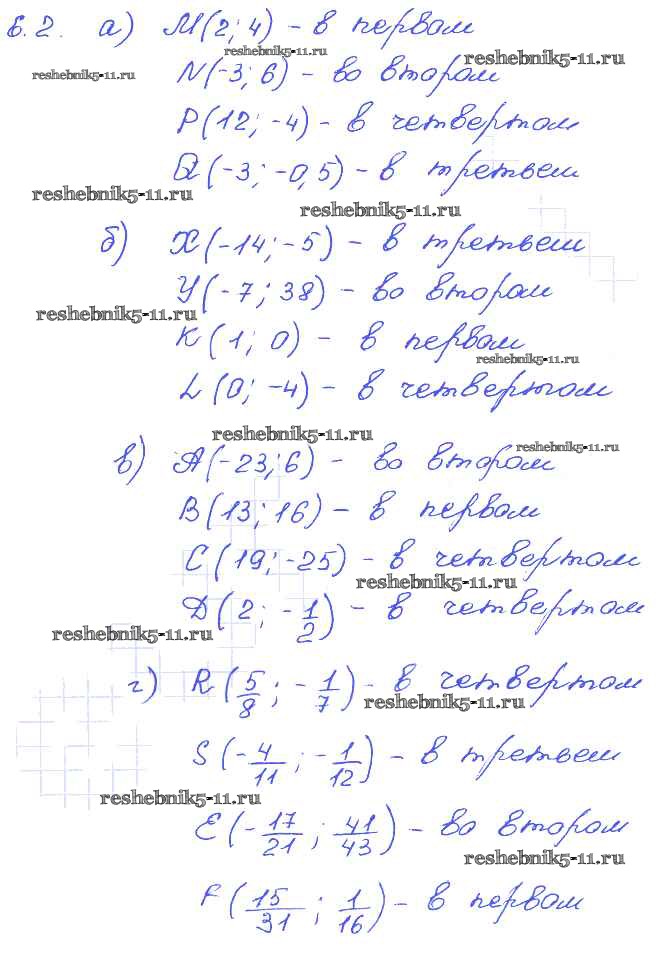 6.2. а) M(2; 4) - в первом
reshebnik5-11.ru
reshebnik5-11.ru
reshebnik5-11.ru
N(-3; 6) - во втором
P(12; -4) - в четвертом
Q(-3; -0,5) - в третьем
reshebnik5-11.ru
reshebnik5-11.ru
б) X(-14; -5) - в третьем
Y(-7; 38) - во втором
reshebnik5-11.ru
K(1; 0) - в первом
reshebnik5-11.ru
L(0; -4) - в четвертом
reshebnik5-11.ru
reshebnik5-11.ru
в) A(-23; 6) - во втором
B(13; 16) - в первом
C(19; -25) - в четвертом
reshebnik5-11.ru
D(2; -1/2) - в четвертом
reshebnik5-11.ru
г) R(5/8; -1/7) - в четвертом
reshebnik5-11.ru
S(-4/11; -1/12) - в третьем
reshebnik5-11.ru
E(-17/21; 41/43) - во втором
reshebnik5-11.ru
F(15/31; 1/16) - в первом